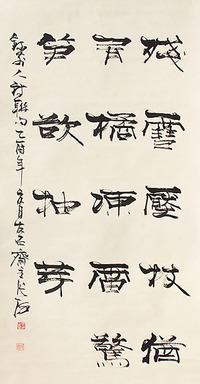 殘雪壓枝猶
有橘凍雷驚
笋欲抽芽
人詩聯句乙酉年 月 石齋主